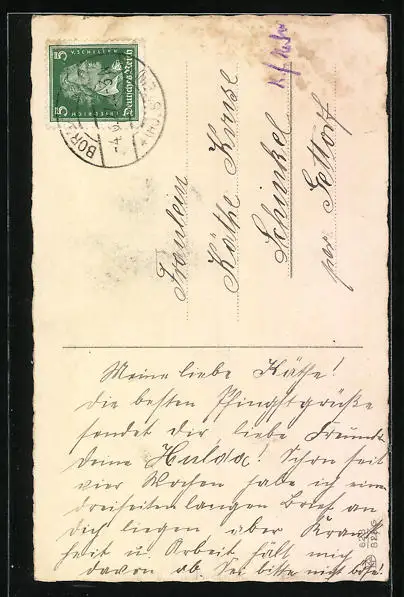 5 5
F. v. SCHILLER
Deutsches Reich
BOR
Fräulein
Käthe
Schinkel
per Gettorf
Meine liebe Käthe!
die besten Pfingstgrüße
sendet dir, liebe Freundin
deine Hulda! Schon seit
vier Wochen habe ich einen
dreiseiten langen Brief an
dich liegen aber Krank
heit u. Arbeit hält mich
davon ab. Sei bitte nicht böse!